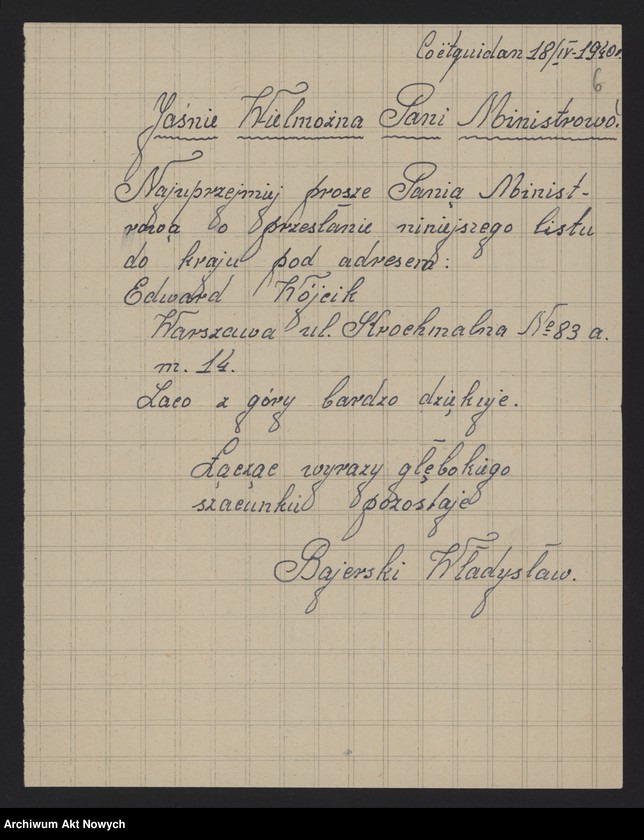 Coëtquidan 18/IV-1940r.
6
Jaśnie Wielmożna Pani Ministrowó.
Najuprzejmiej prosze Panią Minist-
rową o przesłanie niniejszego listu
do kraju pod adresem:
Edward Wójcik
Warszawa ul. Krochmalna № 83 a.
m. 14.
Zaco z góry bardzo dziękuje.
Łącząc wyrazy głębokiego
szacunku pozostaje
Bajerski Władysław.
Archiwum Akt Nowych